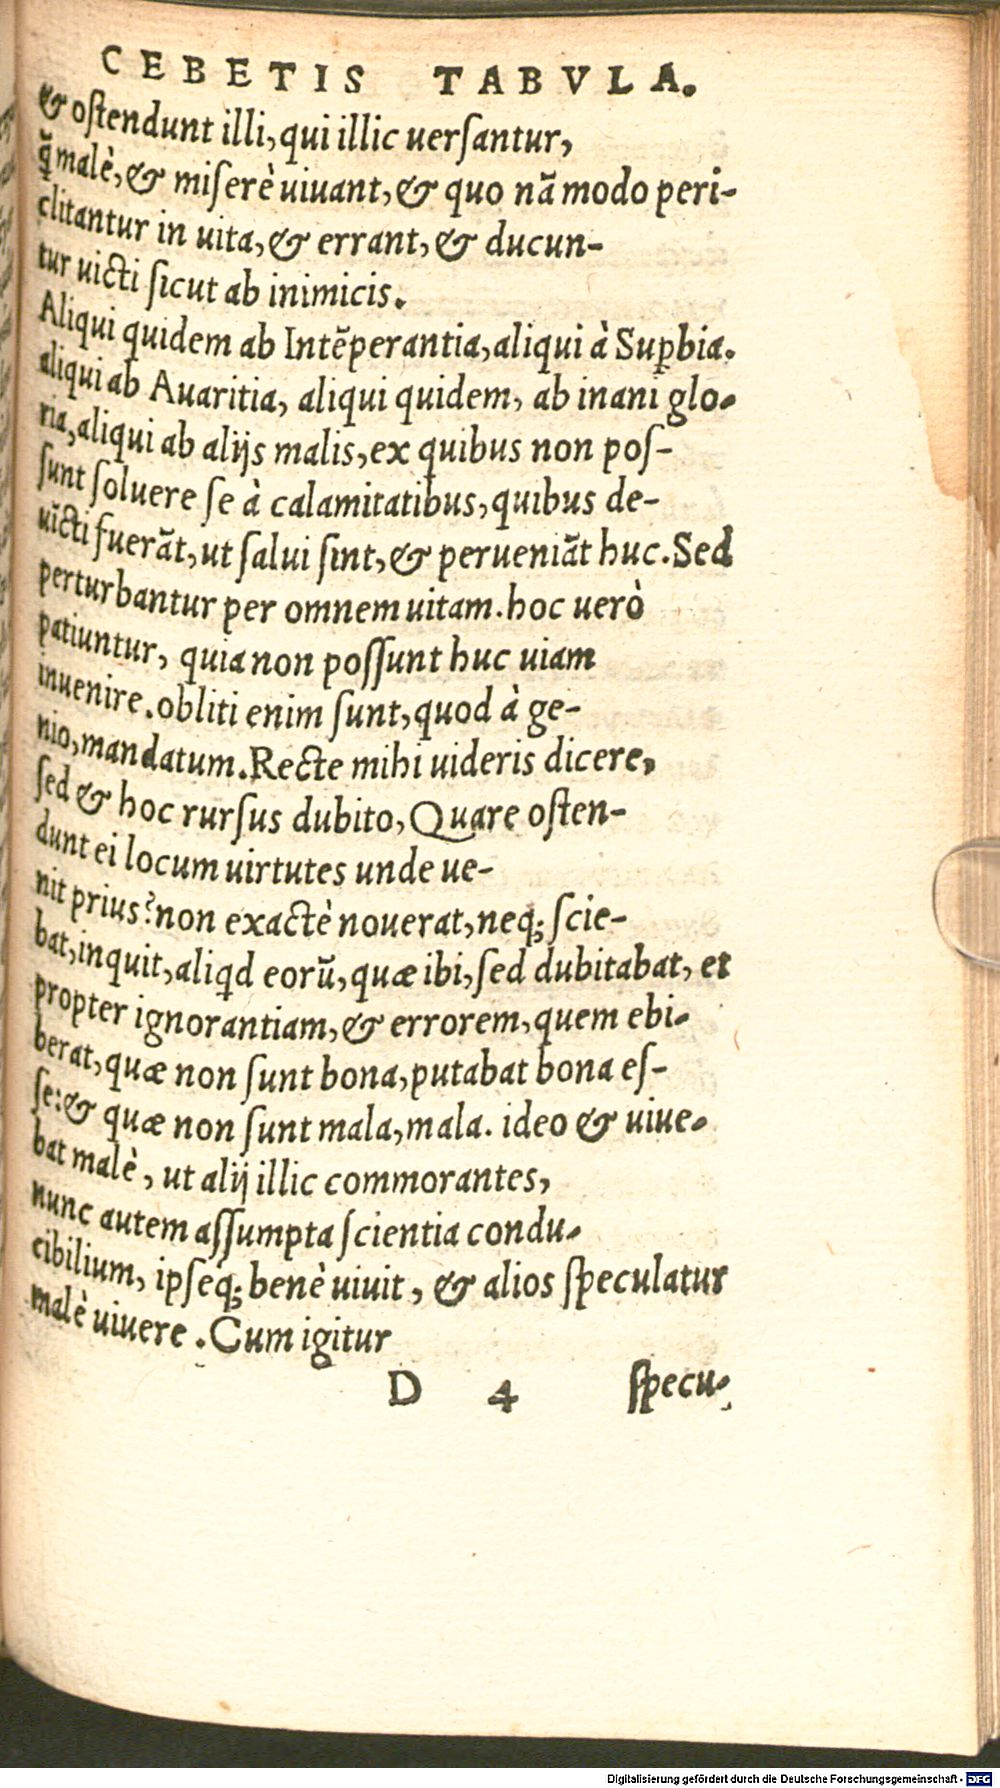 CEBETIS TABVLA.
& ostendunt illi, qui illic uersantur,
q̃ malè, & miserè uiuant, & quo nã modo peri-
clitantur in uita, & errant, & ducun-
tur uicti sicut ab inimicis.
Aliqui quidem ab Intẽperantia, aliqui à Supꝑbia.
aliqui ab Auaritia, aliqui quidem, ab inani glo-
ria, aliqui ab alijs malis, ex quibus non pos-
sunt soluere se à calamitatibus, quibus de-
uĩcti fuerãt, ut salui sint, & perueniãt huc. Sed
perturbantur per omnem uitam. hoc uerò
patiuntur, quia non possunt huc uiam
inuenire. obliti enim sunt, quod à ge-
nio, mandatum. Recte mihi uideris dicere,
sed & hoc rursus dubito, Quare osten-
dunt ei locum uirtutes unde ue-
nit prius? non exactè nouerat, neq; scie-
bat, inquit, aliqd eorũ, quæ ibi, sed dubitabat, et
propter ignorantiam, & errorem, quem ebi-
berat, quæ non sunt bona, putabat bona es-
se: & quæ non sunt mala, mala. ideo & uiue-
bat malè, ut alij illic commorantes,
nunc autem assumpta scientia condu-
cibilium, ipseq; benè uiuit, & alios speculatur
malè uiuere. Cum igitur
D 4 specu-
Digitalisierung gefördert durch die Deutsche Forschungsgemeinschaft - DFG